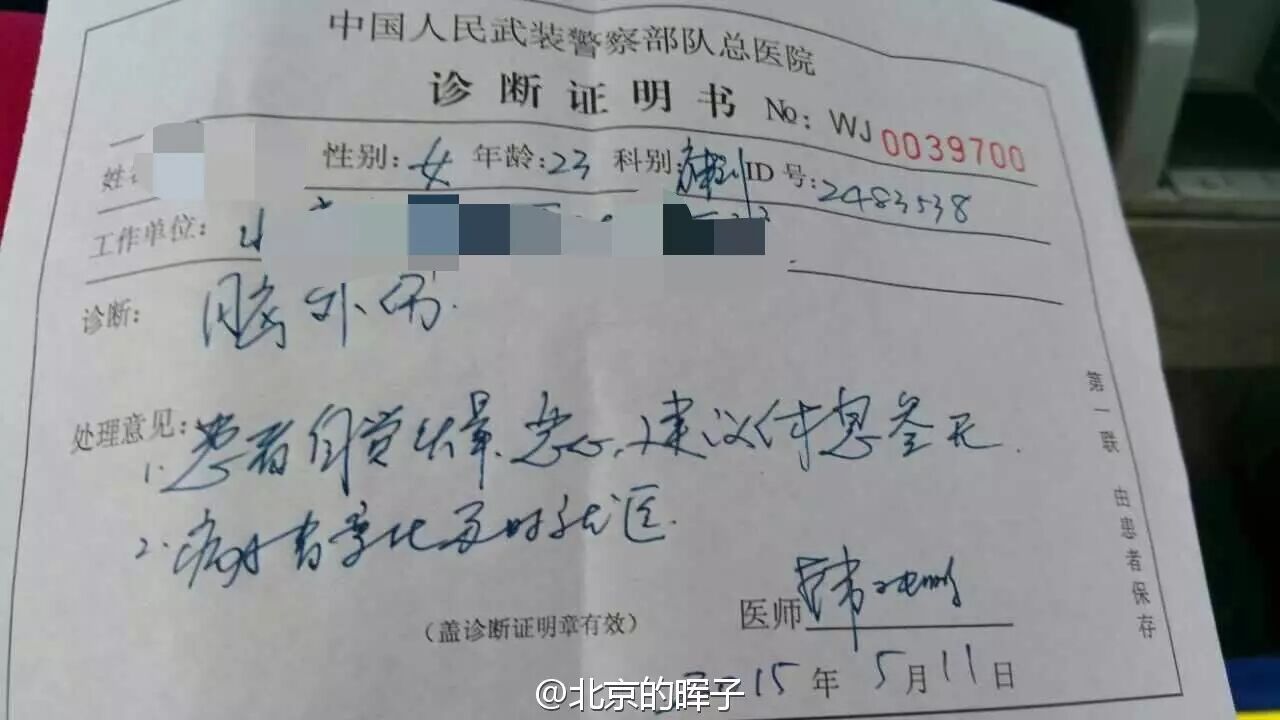 中国人民武装警察部队总医院
诊断证明书 No: WJ 0039700
姓: 性别: 女 年龄: 23 科别: ID号: 2483538
工作单位:
诊断: 脑外伤.
处理意见:
1. 患者自觉头晕.恶心.建议休息叁天.
2. 病情变化及时就医.
(盖诊断证明章有效)
医师 韩
2015年5月11日
第一联 由患者保存
@北京的晖子